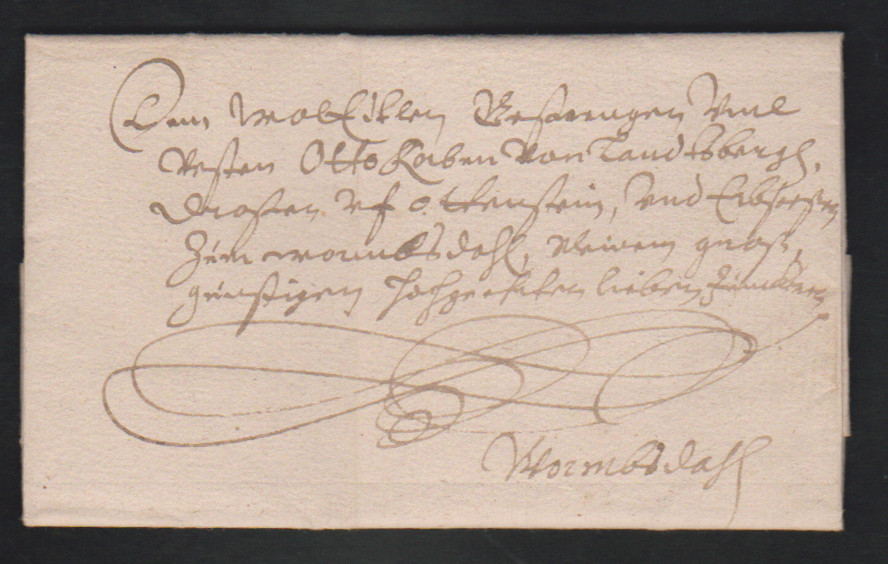 Dem WolEdlen Gestrengen Und
Vesten Otto Raben Von Landtsbergh,
Drosten uf Ottenstein, Und Erbsessen
Zum wormbsdahl, Meinem großg
günstigen Hochgeehrten lieben Junckern
Wormbsdahl